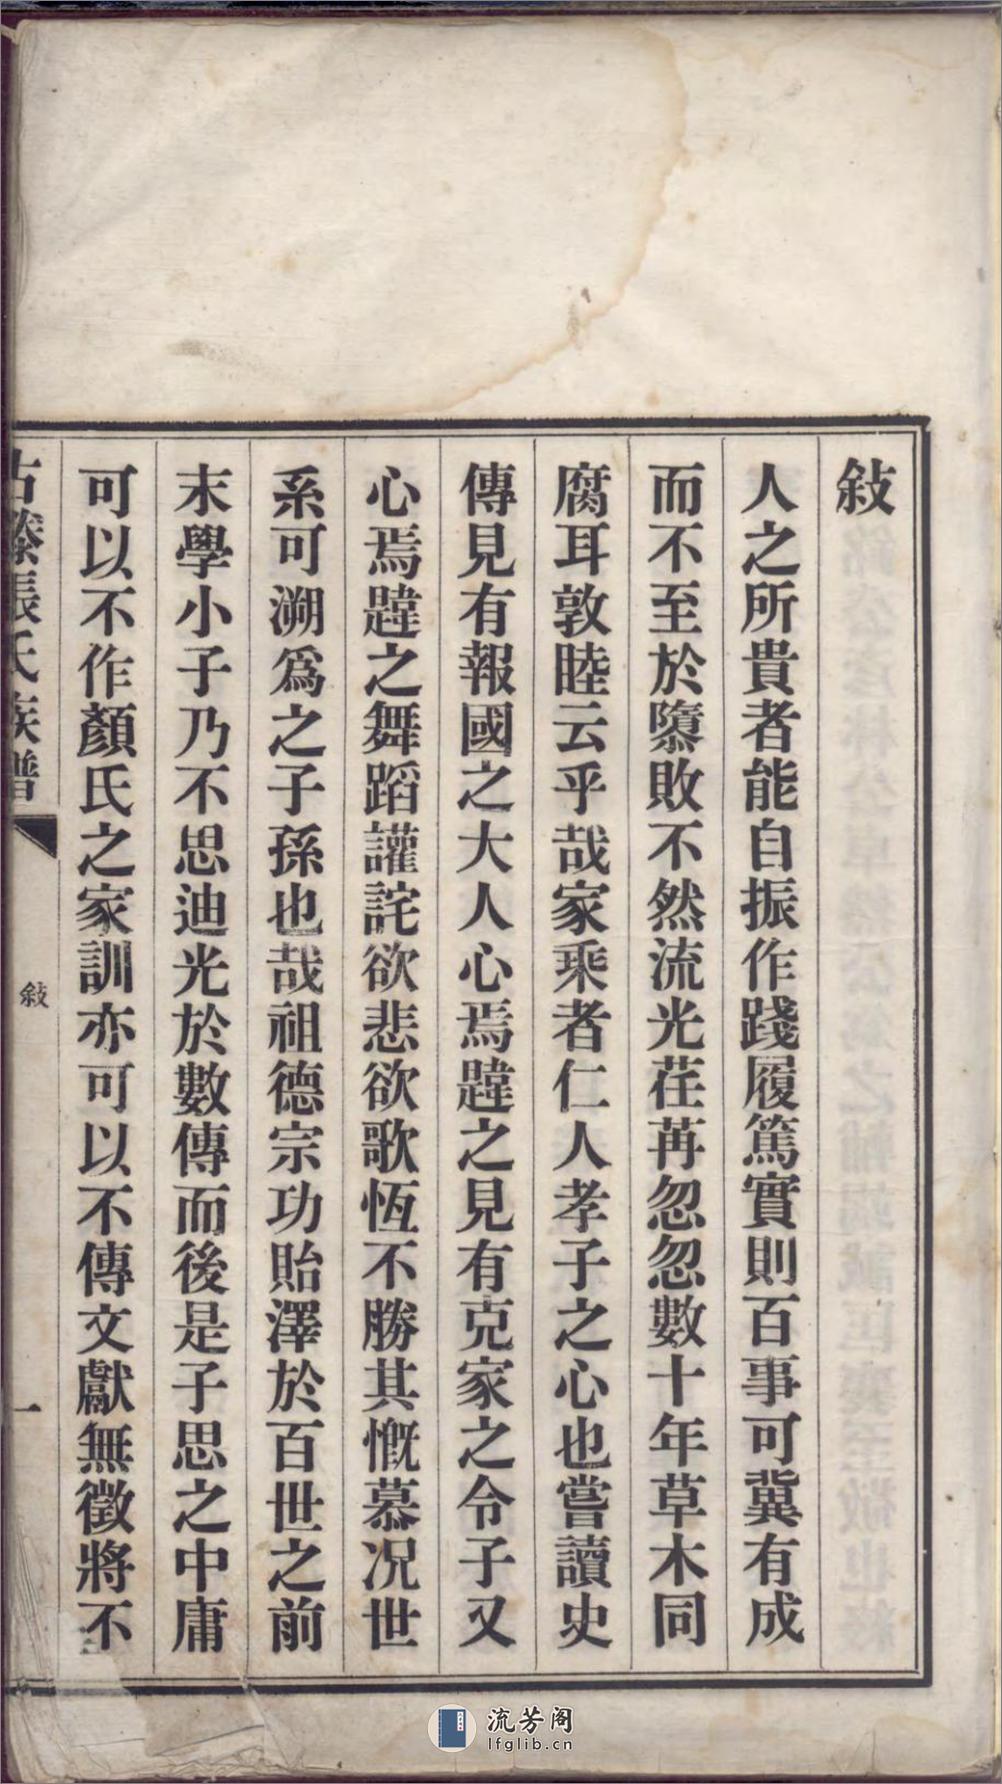 敍
人之所貴者能自振作踐履篤實則百事可冀有成
而不至於隳敗不然流光荏苒忽忽數十年草木同
腐耳敦睦云乎哉家乘者仁人孝子之心也嘗讀史
傳見有報國之大人心焉韙之見有克家之令子又
心焉韙之舞蹈讙詫欲悲欲歌恆不勝其慨慕况世
系可溯爲之子孫也哉祖德宗功貽澤於百世之前
末學小子乃不思迪光於數傳而後是子思之中庸
可以不作顏氏之家訓亦可以不傳文獻無徵將不
古滕張氏族譜
敍
一
流芳阁
lfglib.cn